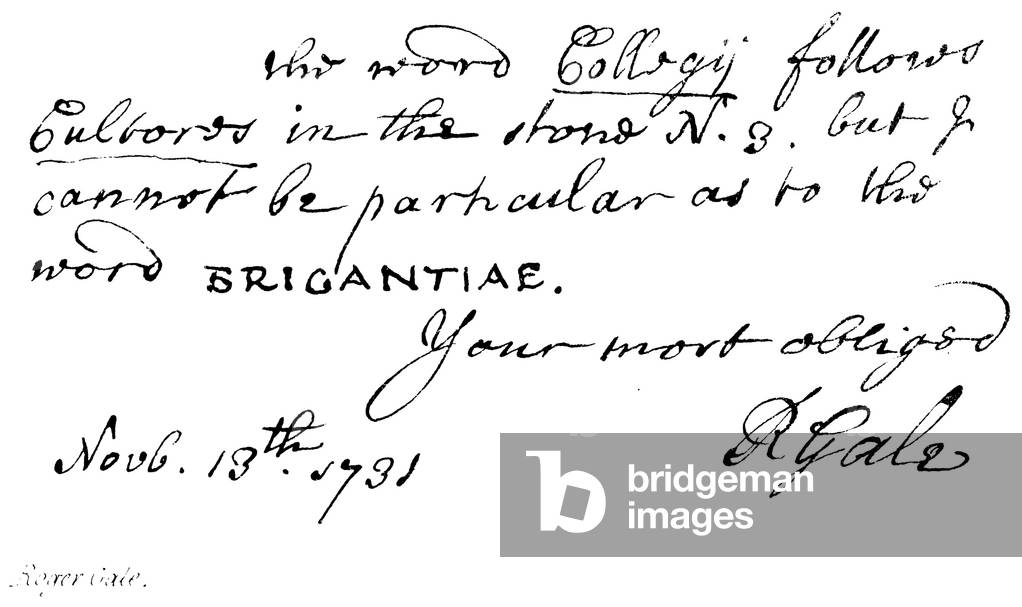 the word Collegij follows
Cultores in the stone N. 3. but I
cannot be particular as to the
word BRIGANTIAE.
Your most obliged
RGale
Novb. 13th. 1731
bridgeman
images
Roger Gale.